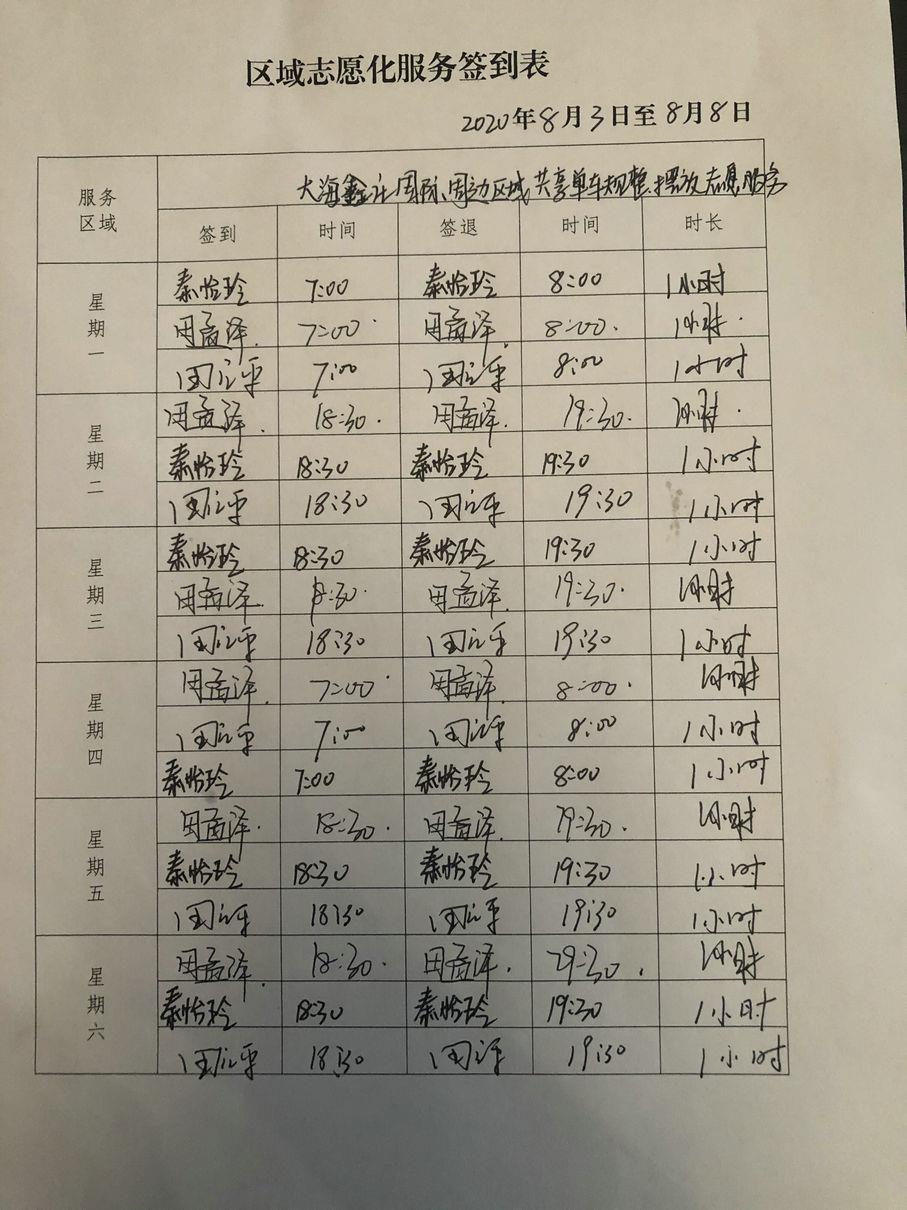 区域志愿化服务签到表
2020年8月3日至8月8日
服务区域 大海鑫庄国际、周边区域共享单车规整摆放志愿服务
签到 时间 签退 时间 时长
星期一
秦怡玲 7:00 秦怡玲 8:00 1小时
田孟泽. 7:00. 田孟泽. 8:00. 1小时.
7:00 8:00 1小时
星期二
田孟泽. 18:30. 田孟泽. 19:30. 1小时.
秦怡玲 18:30 秦怡玲 19:30 1小时
18:30 19:30 1小时
星期三
秦怡玲 18:30 秦怡玲 19:30 1小时
田孟泽. 18:30. 田孟泽. 19:30. 1小时
18:30 19:30 1小时
星期四
田孟泽. 7:00. 田孟泽. 8:00. 1小时
7:00 8:00 1小时
秦怡玲 7:00 秦怡玲 8:00 1小时
星期五
田孟泽. 18:30. 田孟泽. 19:30. 1小时
秦怡玲 18:30 秦怡玲 19:30 1小时
18:30 19:30 1小时
星期六
田孟泽. 18:30. 田孟泽. 29:30. 1小时
秦怡玲 18:30 秦怡玲 19:30 1小时
18:30 19:30 1小时